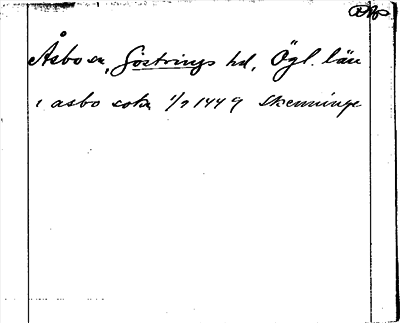 Åsbo sn, Göstrings hd, Ögl. län
i asbo sokn 1/7 1449 Skenninge